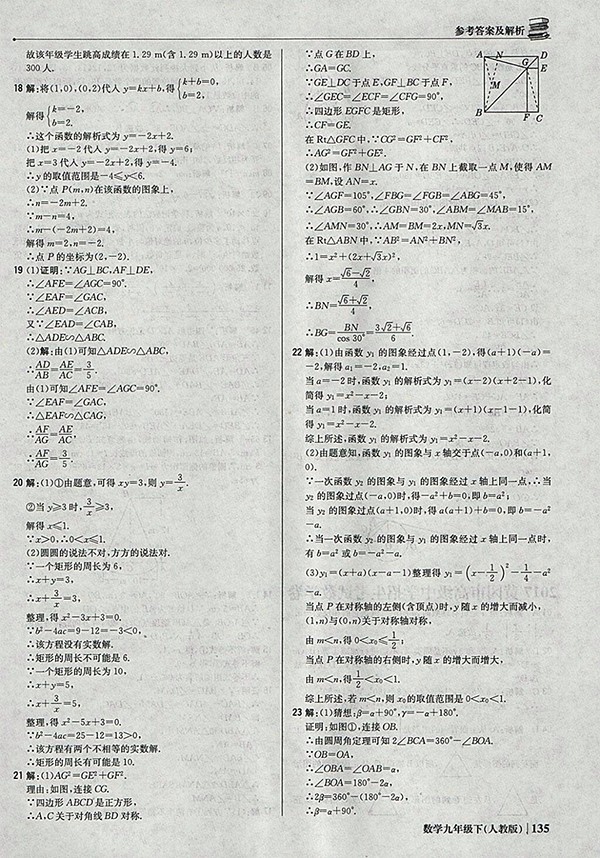 参考答案及解析
故该年级学生跳高成绩在 1.29 m(含 1.29 m)以上的人数是
300 人.
18 解:将(1,0),(0,2)代入 y=kx+b,得{k+b=0, b=2,
解得{k=-2, b=2.
∴这个函数的解析式为 y=-2x+2.
(1)把 x=-2 代入 y=-2x+2,得 y=6;
把 x=3 代入 y=-2x+2,得 y=-4.
∴y 的取值范围是-4≤y<6.
(2)∵点 P(m,n)在该函数的图象上,
∴n=-2m+2.
∵m-n=4,
∴m-(-2m+2)=4,
解得 m=2,n=-2.
∴点 P 的坐标为(2,-2).
19 (1)证明:∵AG⊥BC,AF⊥DE,
∴∠AFE=∠AGC=90°.
∵∠EAF=∠GAC,
∴∠AED=∠ACB,
又∵∠EAD=∠CAB,
∴△ADE∽△ABC.
(2)解:由(1)可知△ADE∽△ABC,
∴AD/AB=AE/AC=3/5.
由(1)可知∠AFE=∠AGC=90°.
∵∠EAF=∠GAC,
∴△EAF∽△CAG,
∴AF/AG=AE/AC,
∴AF/AG=3/5.
20 解:(1)①由题意,可得 xy=3,则 y=3/x.
②当 y≥3 时,3/x≥3,
解得 x≤1.
∵x>0,∴0<x≤1.
(2)圆圆的说法不对,方方的说法对.
∵一个矩形的周长为 6,
∴x+y=3,
∴x+3/x=3,
整理,得 x²-3x+3=0.
∵b²-4ac=9-12=-3<0,
∴该方程没有实数解.
∴矩形的周长不可能是 6.
∵一个矩形的周长为 10,
∴x+y=5,
∴x+3/x=5,
整理,得 x²-5x+3=0.
∵b²-4ac=25-12=13>0,
∴该方程有两个不相等的实数解.
∴矩形的周长有可能是 10.
21 解:(1)AG²=GE²+GF².
理由:如图,连接 CG.
∵四边形 ABCD 是正方形,
∴A,C 关于对角线 BD 对称.
∵点 G 在 BD 上,
∴GA=GC.
∵GE⊥DC 于点 E,GF⊥BC 于点 F,
∴∠GEC=∠ECF=∠CFG=90°,
∴四边形 EGFC 是矩形,
∴CF=GE.
在 Rt△GFC 中,∵CG²=GF²+CF²,
∴AG²=GF²+GE².
A N D
G E
M
B F C
(2)如图,作 BN⊥AG 于 N,在 BN 上截取一点 M,使得 AM
=BM,设 AN=x.
∵∠AGF=105°,∠FBG=∠FGB=∠ABG=45°,
∴∠AGB=60°,∠GBN=30°,∠ABM=∠MAB=15°,
∴∠AMN=30°,∴AM=BM=2x,MN=√3x.
在 Rt△ABN 中,∵AB²=AN²+BN²,
∴1=x²+(2x+√3x)²,
解得 x=(√6-√2)/4,
∴BN=(√6+√2)/4,
∴BG=BN/cos 30°=(3√2+√6)/6.
22 解:(1)由函数 y₁ 的图象经过点(1,-2),得(a+1)(-a)=
-2,解得 a₁=-2,a₂=1.
当 a=-2 时,函数 y₁ 的解析式为 y₁=(x-2)(x+2-1),化
简得 y₁=x²-x-2;
当 a=1 时,函数 y₁ 的解析式为 y₁=(x+1)(x-1-1),化简
得 y₁=x²-x-2.
综上所述,函数 y₁ 的解析式为 y₁=x²-x-2.
(2)由题意知,函数 y₁ 的图象与 x 轴交于点(-a,0)和(a+1,
0).
∵一次函数 y₂ 的图象与 y₁ 的图象经过 x 轴上同一点,∴当
y₂ 的图象过点(-a,0)时,得-a²+b=0,即 b=a²;
当 y₂ 的图象过点(a+1,0)时,得 a(a+1)+b=0,即 b=-a²
-a.
∴当一次函数 y₂ 的图象与 y₁ 的图象经过 x 轴上同一点时,
有 b=a² 或 b=-a²-a.
(3)y₁=(x+a)(x-a-1)整理得 y₁=(x-1/2)²-1/4-a²
-a.
当点 P 在对称轴的左侧(含顶点)时,y 随 x 的增大而减小,
(1,n)与(0,n)关于对称轴对称,
由 m<n,得 0<x₀≤1/2;
当点 P 在对称轴的右侧时,y 随 x 的增大而增大,
由 m<n,得1/2<x₀<1.
综上所述,若 m<n,则 x₀ 的取值范围是 0<x₀<1.
23 解:(1)猜想:β=α+90°,γ=-α+180°.
证明:如图①,连接 OB.
∴由圆周角定理可知 2∠BCA=360°-∠BOA.
∵OB=OA,
∴∠OBA=∠OAB=α,
∴∠BOA=180°-2α,
∴2β=360°-(180°-2α),
∴β=α+90°.
数学九年级下(人教版) | 135